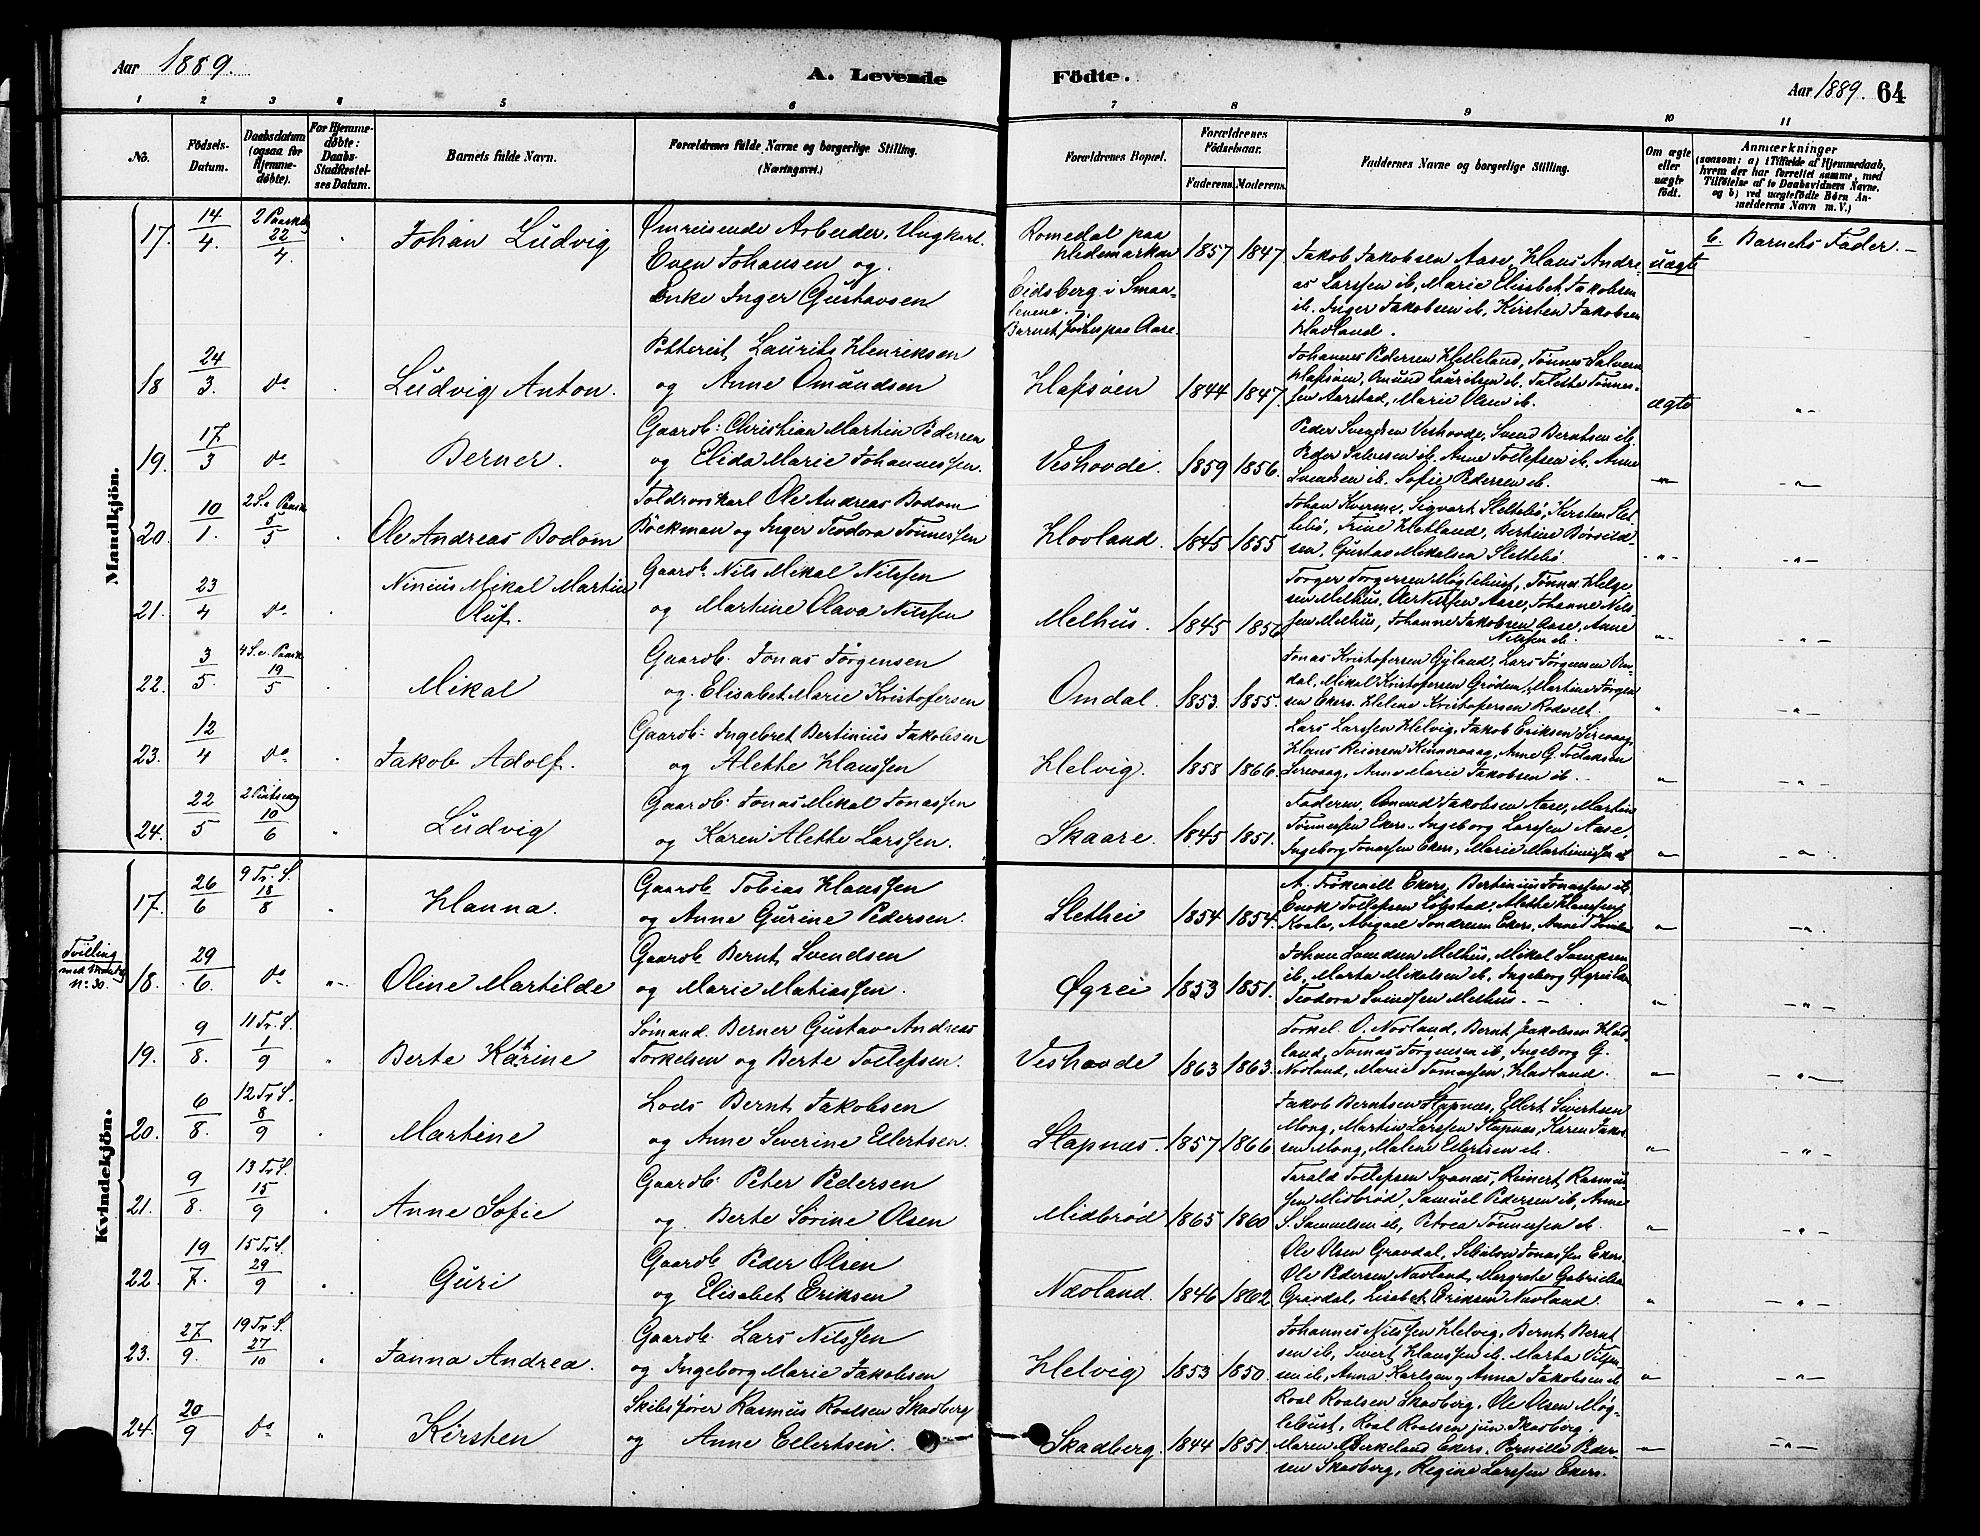 Aar 1889.
A. Levende Födte.
Aar 1889. 64
1 2 3 4 5 6 7 8 9 10 11
No.
Födsels-Datum.
Daabsdatum (ogsaa for Hjemme-døbte).
For Hjemme-døbte: Daabs-Stadfæstelses Datum.
Barnets fulde Navn.
Forældrenes fulde Navne og borgerlige Stilling. (Næringsvei.)
Forældrenes Bopæl.
Forældrenes Födselsaar.
Faderens. Moderens.
Faddernes Navne og borgerlige Stilling.
Om ægte eller uægte født.
Anmærkninger
(saasom: a) i Tilfælde af Hjemmedaab, hvem der har forrettet samme, med Tilföielse af to Daabsvidners Navne, og b) ved uægtefödte Børn Anmelderens Navn m. V.)
Mandkjön.
17. 14/4. 2 Paaskd. 22/4. Johan Ludvig
Omreisende Arbeider, Ungkarl.
Even Johansen og
Enke Inger Gustavsen
Romedal paa Hedemarken
Eidsberg i Smaalenene.
Barnet født paa Aase.
1857 1847
Jakob Jakobsen Aase, Hans Andreas Larssen ib, Marie Elisabet Jakobsen
ib. Inger Jakobsen ib, Kirsten Jakobsen
Havland.
uægte
b. Barnets Fader.
18 24/3. do Ludvig Anton.
Laurits Henriksen
og Anne Omundsen
Hafsøen 1844 1847.
Johannes Pedersen Helleland, Tønnes Salvesen
Hafsøen, Omund Lauritsen ib. Talette Tønnessen Aarstad, Marie Olsen ib.
ægte
19. 17/3 do Berner.
Gaardb: Christian Martin Pedersen
og Elida Marie Johannessen.
Veshovde. 1859 1856.
Peder Svendsen Veshovde, Svend Berntsen ib.
Peder Seversen ib. Anne Tollefsen ib. Anne
Svendsen ib. Sofie Pedersen ib.
20. 10/1. 2 S. e Paaske 5/5 Ole Andreas Bodom
Ole Andreas Bodom
Böckman og Inger Teodora Tønnessen
Hovland. 1845 1855
Johan Kverme, Sigvart Slettebø, Kirsten Slettebø, Trine Hetland, Bertine
Gustav Mikalsen Slettebø
21. 23/4 do Ninius Mikal Martin
Oluf.
Gaardb. Nils Mikal Nilssen
og Martine Olava Nilssen
Melhus. 1845 1856
Torger Torgersen Møglebust, Tønnes Helgesen Melhus, Ole Nilssen Aase, Johanne Nilssen Melhus, Johanne Jakobsen Aase, Anne
Nilssen ib.
22. 3/5. 4 S. e. Paaske 19/5 Mikal
Gaardb. Jonas Jørgensen
og Elisabet Marie Kristofersen
Omdal. 1853. 1855.
Jonas Kristofersen Gyland, Lars Jørgensen Omdal, Mikal Kristofersen Grøden, Martine Jørgensen Ekers. Helene Kristofersen Rodvelt.
23. 12/4 do Jakob Adolf.
Gaardb: Ingebret Bertinius Jakobsen
og Alette Hanssen
Helvig. 1858 1866.
Lars Larssen Helvig, Jakob Eriksen Sirevaag,
Hans Reiersen Kinnervaag, Anne G.
Sirevaag, Anne Marie Jakobsen ib.
24. 22/5 2 Pintsedag 10/6 Ludvig
Gaardb. Jonas Mikal Jonassen
og Karen Alette Larssen.
Skaare. 1845 1851.
Faderen, Omund Jakobsen Aase, Martin
Tønnessen Ekers. Ingeborg Larssen Aase,
Ingeborg Jonassen Ekers, Marie Martiniussen ib
Kvindekjön.
17. 26/6 9 Tr. S. 18/8 Hanna.
Gaardb Tobias Hanssen
og Anne Gurine Pedersen.
Slethei 1854 1854.
Ekers, Bertinius Jonassen ib.
Enok Tollefsen Løgstad, Alette Hanssen
Koale, Abigael Sondresen Ekers, Anne
Tvilling
18. 29/6. do Oline Martilde
Gaardb Bernt Svendsen
og Marie Matiassen.
Øgrei 1853 1851.
Johan Svendsen Melhus, Mikal Svendsen
ib. Marta Mikalsen ib, Ingeborg
Teodora Svendsen Melhus.
19. 9/8. 11 Tr. S. 1/9 Berte Katrine
Sømand. Berner Gustav Andreas
Torkelsen og Berte Tollefsen.
Veshovde 1863 1863.
Torkel O. Navland, Bernt Jakobsen Havland, Tomas Jørgensen ib, Ingeborg G.
Navland, Marie Tomassen, Havland.
20. 6/8. 12 Tr. S. 8/9 Martine
Lods Bernt Jakobsen
og Anne Severine Eilertsen.
Stapnæs. 1857 1866
Jakob Berntsen Stapnæs, Ellert Sivertsen
Mong, Martin Larssen Stapnæs, Karen Jakobsen Mong, Malene Eilertsen ib.
21. 9/8. 13 Tr. S. 15/9 Anne Sofie
Gaardb. Peter Pedersen
og Berte Sørine Olsen
Midbrød 1865 1860
Tarald Tollefsen Svanes, Reinert Rasmussen Midbrød, Samuel Pedersen ib, Anne
S. Samuelsen ib, Petrea Tønnessen ib.
22. 19/7. 15 Tr. S. 29/9 Guri
Gaardb Peder Olsen
og Elisabet Eriksen
Navland. 1846 1862
Ole Olsen Gravdal, Jonassen Ekers.
Ole Pedersen Navland, Margrete Gabrielsen
Gravdal, Lisabet Eriksen Navland.
23. 27/9. 19 Tr. S. 27/10 Janna Andrea.
Gaardb. Lars Nilssen
og Ingeborg Marie Jakobsen
Helvig 1853 1850.
Johannes Nilssen Helvig, Bernt Berntsen ib, Sivert Hanssen ib. Marta
ib, Anna Karlsen, Anna Jakobsen ib
24. 20/9 do Kirsten
Skibsfører Rasmus Roalsen Skadberg
og Anne Eilertsen.
Skadberg. 1844 1851
Roal Roalsen Skadberg, Ole Olsen Møglebust, Roal Roalsen jun. Skadberg.
Maren Birkeland Ekers. Pernille Pedersen Skadberg, Regine Larssen Ekers.